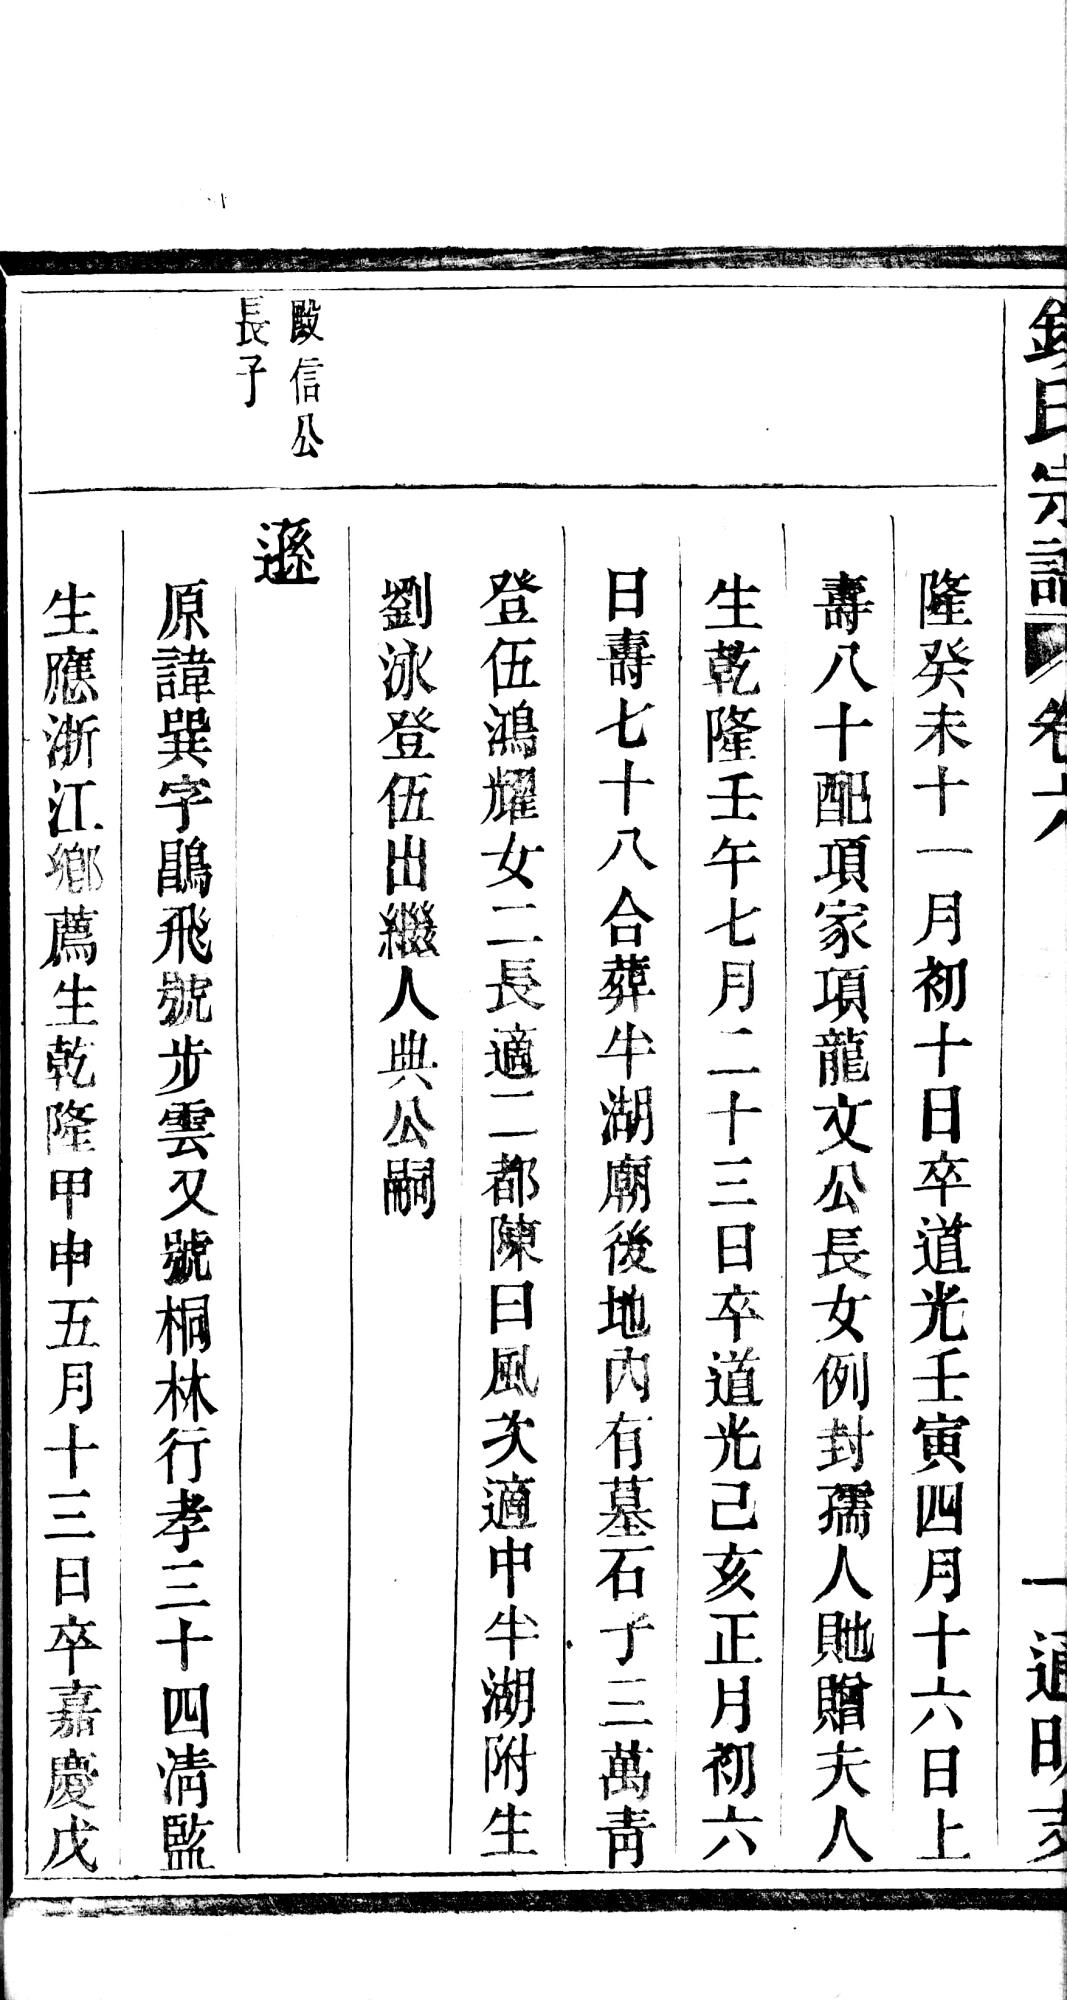 氏宗譜 卷六 一 通明支
隆癸未十一月初十日卒道光壬寅四月十六日上
壽八十配項家項龍文公長女例封孺人貤贈夫人
生乾隆壬午七月二十三日卒道光己亥正月初六
日壽七十八合葬半湖廟後地內有墓石子三萬青
登伍鴻耀女二長適二都陳曰風次適中半湖附生
劉泳登伍出繼人典公嗣
殿信公
長子
遜
原諱巽字鵾飛號步雲又號桐林行孝三十四清監
生應浙江鄉薦生乾隆甲申五月十三日卒嘉慶戊